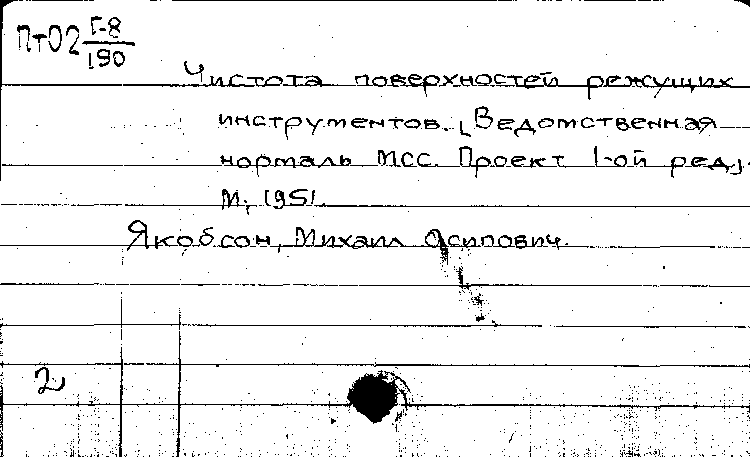 ПтО2 Г-8
190
Чистота поверхностей режущих
инструментов. [Ведомственная
нормаль МСС. Проект 1-ой ред.]
М., 1951.
Якобсон, Михаил Осипович.
2